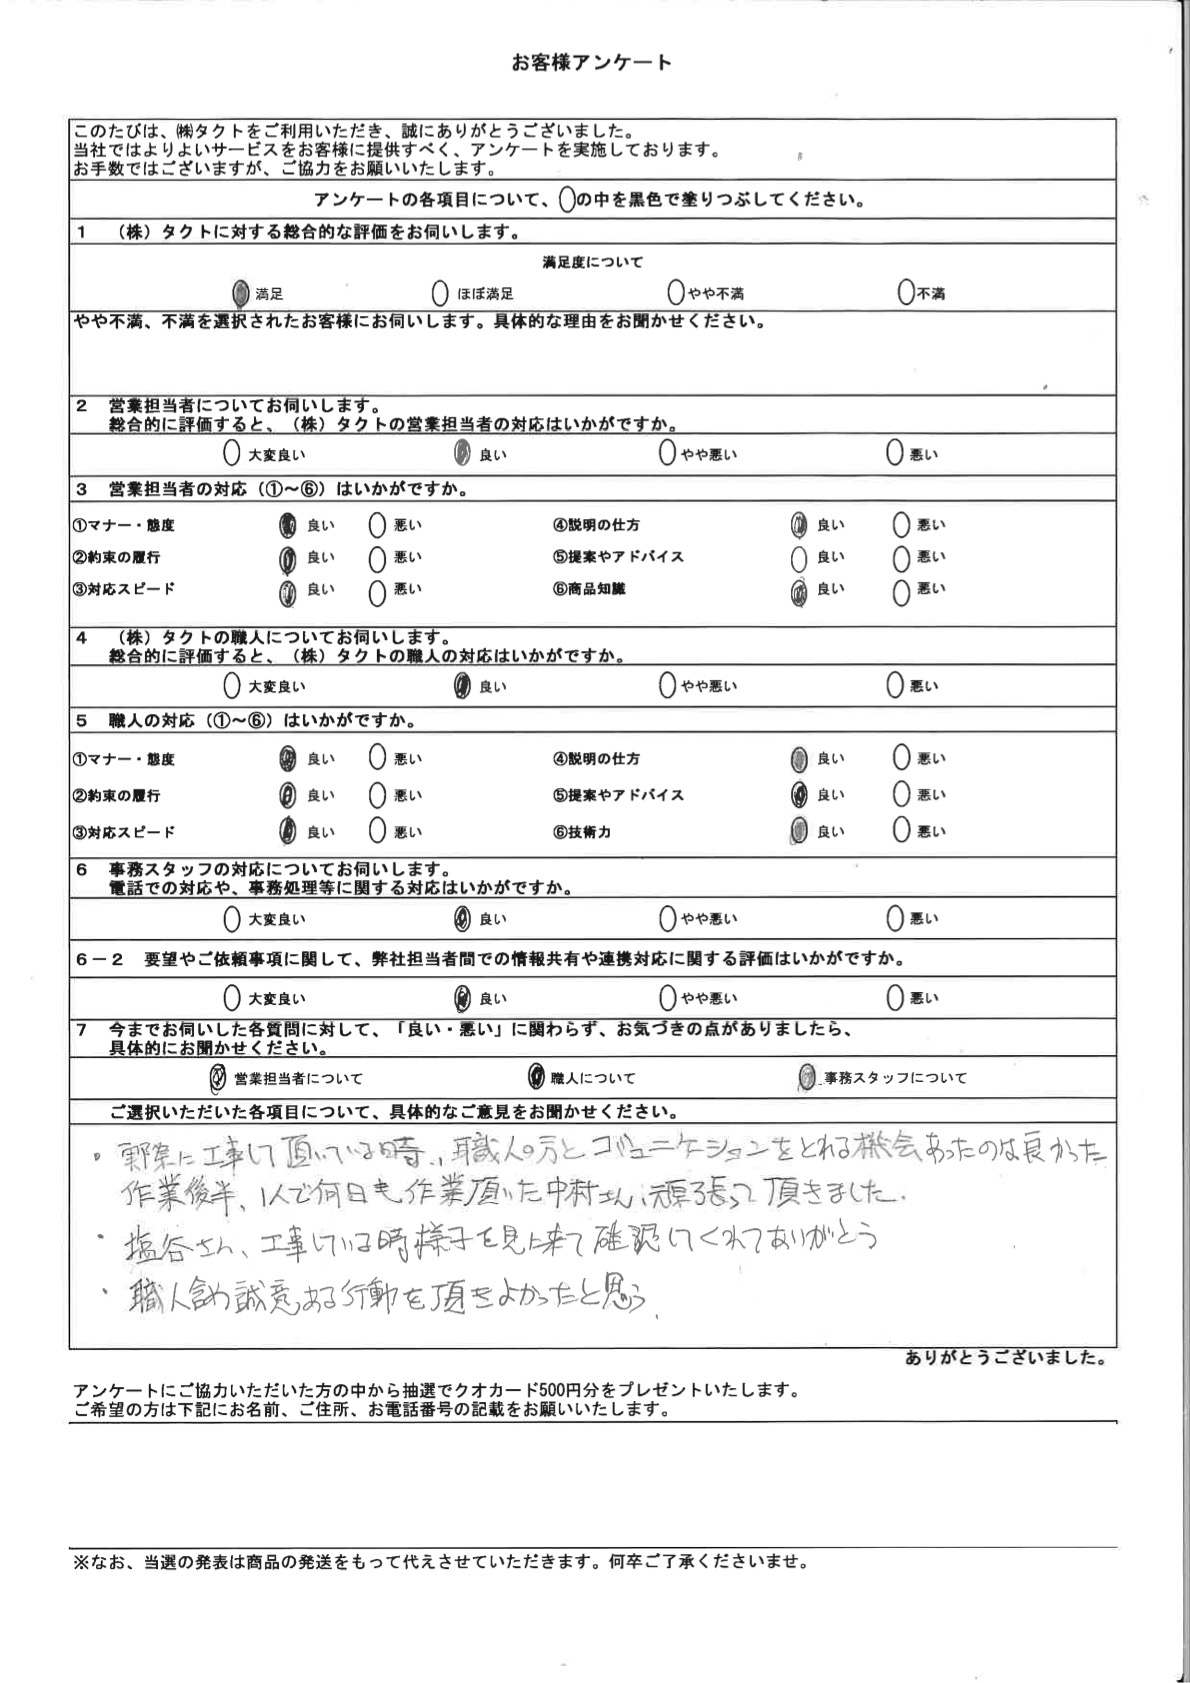 お客様アンケート
このたびは、㈱タクトをご利用いただき、誠にありがとうございました。
当社ではよりよいサービスをお客様に提供すべく、アンケートを実施しております。
お手数ではございますが、ご協力をお願いいたします。
アンケートの各項目について、○の中を黒色で塗りつぶしてください。
1 （株）タクトに対する総合的な評価をお伺いします。
満足度について
満足 ほぼ満足 やや不満 不満
やや不満、不満を選択されたお客様にお伺いします。具体的な理由をお聞かせください。
2 営業担当者についてお伺いします。
総合的に評価すると、（株）タクトの営業担当者の対応はいかがですか。
大変良い 良い やや悪い 悪い
3 営業担当者の対応（①～⑥）はいかがですか。
①マナー・態度 良い 悪い ④説明の仕方 良い 悪い
②約束の履行 良い 悪い ⑤提案やアドバイス 良い 悪い
③対応スピード 良い 悪い ⑥商品知識 良い 悪い
4 （株）タクトの職人についてお伺いします。
総合的に評価すると、（株）タクトの職人の対応はいかがですか。
大変良い 良い やや悪い 悪い
5 職人の対応（①～⑥）はいかがですか。
①マナー・態度 良い 悪い ④説明の仕方 良い 悪い
②約束の履行 良い 悪い ⑤提案やアドバイス 良い 悪い
③対応スピード 良い 悪い ⑥技術力 良い 悪い
6 事務スタッフの対応についてお伺いします。
電話での対応や、事務処理等に関する対応はいかがですか。
大変良い 良い やや悪い 悪い
6－2 要望やご依頼事項に関して、弊社担当者間での情報共有や連携対応に関する評価はいかがですか。
大変良い 良い やや悪い 悪い
7 今までお伺いした各質問に対して、「良い・悪い」に関わらず、お気づきの点がありましたら、
具体的にお聞かせください。
営業担当者について 職人について 事務スタッフについて
ご選択いただいた各項目について、具体的なご意見をお聞かせください。
・実際に工事して頂いている時、職人の方とコミュニケーションをとれる機会あったのは良かった
作業後半、1人で何日も作業頂いた中村さん、頑張って頂きました。
・塩谷さん、工事している時様子を見に来て確認してくれてありがとう
・職人含め誠意ある行動を頂きよかったと思う。
ありがとうございました。
アンケートにご協力いただいた方の中から抽選でクオカード500円分をプレゼントいたします。
ご希望の方は下記にお名前、ご住所、お電話番号の記載をお願いいたします。
※なお、当選の発表は商品の発送をもって代えさせていただきます。何卒ご了承くださいませ。